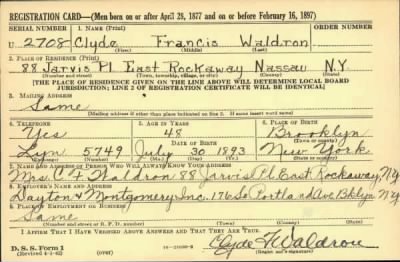 REGISTRATION CARD—(Men born on or after April 28, 1877 and on or before February 16, 1897)
SERIAL NUMBER 1. NAME (Print) ORDER NUMBER
U 2708 Clyde Francis Waldron
(First) (Middle) (Last)
2. PLACE OF RESIDENCE (Print)
88 Jarvis Pl East Rockaway Nassau N.Y.
(Number and street) (Town, township, village, or city) (County) (State)
[THE PLACE OF RESIDENCE GIVEN ON THE LINE ABOVE WILL DETERMINE LOCAL BOARD
JURISDICTION; LINE 2 OF REGISTRATION CERTIFICATE WILL BE IDENTICAL]
3. MAILING ADDRESS
Same
[Mailing address if other than place indicated on line 2. If same insert word same]
4. TELEPHONE 5. AGE IN YEARS 6. PLACE OF BIRTH
Yes 48 Brooklyn
DATE OF BIRTH (Town or county)
Lyn 5749 July 30 1893 New York
(Exchange) (Number) (Mo.) (Day) (Yr.) (State or country)
7. NAME AND ADDRESS OF PERSON WHO WILL ALWAYS KNOW YOUR ADDRESS
Mrs. C F Waldron 88 Jarvis Pl East Rockaway, N.Y.
8. EMPLOYER'S NAME AND ADDRESS
Dayton & Montgomery Inc. 176 So Portland Ave Bklyn N.Y
9. PLACE OF EMPLOYMENT OR BUSINESS
Same
(Number and street or R. F. D. number) (Town) (County) (State)
I AFFIRM THAT I HAVE VERIFIED ABOVE ANSWERS AND THAT THEY ARE TRUE.
D. S. S. Form 1
(Revised 4-1-42) (over) Clyde F Waldron
(Registrant's signature)